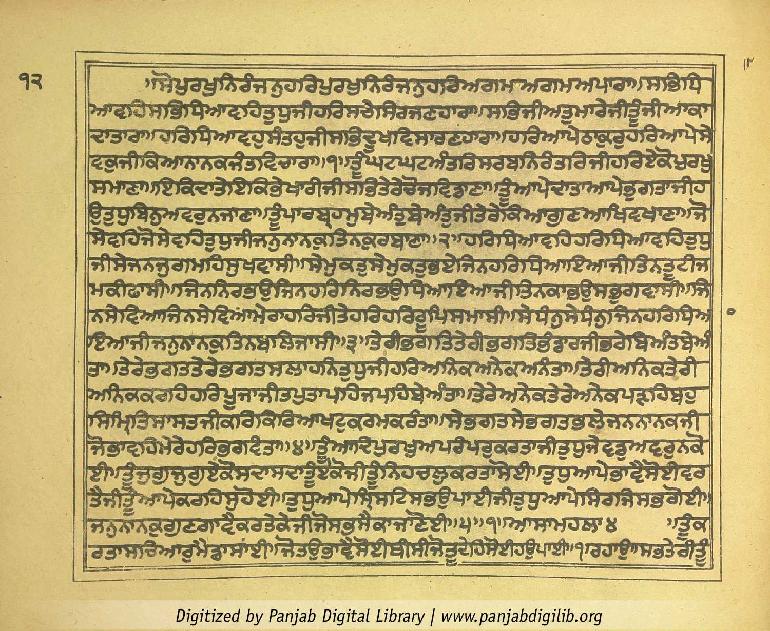 ੧੨
ਸੋਪੁਰਖੁਨਿਰੰਜਨੁਹਰਿਪੁਰਖੁਨਿਰੰਜਨੁਹਰਿਅਗਮਾਅਗਮਅਪਾਰਾ॥ਸਭਿਧਿ
ਆਵਹਿਸਭਿਧਿਆਵਹਿਤੁਧੁਜੀਹਰਿਸਚੇਸਿਰਜਣਹਾਰਾ॥ਸਭਿਜੀਅਤੁਮਾਰੇਜੀਤੂੰਜੀਆਕਾ
ਦਾਤਾਰਾ॥ਹਰਿਧਿਆਵਹੁਸੰਤਹੁਜੀਸਭਿਦੂਖਵਿਸਾਰਣਹਾਰਾ॥ਹਰਿਆਪੇਠਾਕੁਰੁਹਰਿਆਪੇਸੇ
ਵਕੁਜੀਕਿਆਨਾਨਕਜੰਤਵਿਚਾਰਾ॥੧॥ਤੂੰਘਟਘਟਅੰਤਰਿਸਰਬਨਿਰੰਤਰਿਜੀਹਰਿਏਕੋਪੁਰਖੁ
ਸਮਾਣਾ॥ਇਕਿਦਾਤੇਇਕਿਭੇਖਾਰੀਜੀਸਭਿਤੇਰੇਚੋਜਵਿਡਾਣਾ॥ਤੂੰਆਪੇਦਾਤਾਆਪੇਭੁਗਤਾਜੀਹ
ਉਤੁਧੁਬਿਨੁਅਵਰੁਨਜਾਣਾ॥ਤੂੰਪਾਰਬ੍ਰਹਮੁਬੇਅੰਤੁਬੇਅੰਤੁਜੀਤੇਰੇਕਿਆਗੁਣਆਖਿਵਖਾਣਾ॥ਜੋ
ਸੇਵਹਿਜੋਸੇਵਹਿਤੁਧੁਜੀਜਨੁਨਾਨਕੁਤਿਨਕੁਰਬਾਣਾ॥੨॥ਹਰਿਧਿਆਵਹਿਹਰਿਧਿਆਵਹਿਤੁਧੁ
ਜੀਸੇਜਨਜੁਗਮਹਿਸੁਖਵਾਸੀ॥ਸੇਮੁਕਤੁਸੇਮੁਕਤੁਭਏਜਿਨਹਰਿਧਿਆਇਆਜੀਤਿਨਤੂਟੀਜ
ਮਕੀਫਾਸੀ॥ਜਿਨਨਿਰਭਉਜਿਨਹਰਿਨਿਰਭਉਧਿਆਇਆਜੀਤਿਨਕਾਭਉਸਭੁਗਵਾਸੀ॥ਜਿ
ਨਸੇਵਿਆਜਿਨਸੇਵਿਆਮੇਰਾਹਰਿਜੀਤੇਹਰਿਹਰਿਰੂਪਿਸਮਾਸੀ॥ਸੇਧੰਨੁਸੇਧੰਨੁਜਿਨਹਰਿਧਿਅ
ਇਆਜੀਜਨੁਨਾਨਕੁਤਿਨਬਲਿਜਾਸੀ॥੩॥ਤੇਰੀਭਗਤਿਤੇਰੀਭਗਤਿਭੰਡਾਰਜੀਭਰੇਬਿਅੰਤਬੇਅੰ
ਤਾ॥ਤੇਰੇਭਗਤਤੇਰੇਭਗਤਸਲਾਹਨਿਤੁਧੁਜੀਹਰਿਅਨਿਕਅਨੇਕਅਨੰਤਾ॥ਤੇਰੀਅਨਿਕਤੇਰੀ
ਅਨਿਕਕਰਹਿਹਰਿਪੂਜਾਜੀਤਪੁਤਾਪਹਿਜਪਹਿਬੇਅੰਤਾ॥ਤੇਰੇਅਨੇਕਤੇਰੇਅਨੇਕਪੜਹਿਬਹੁ
ਸਿਮ੍ਰਿਤਿਸਾਸਤਜੀਕਰਿਕਿਰਿਆਖਟੁਕਰਮਕਰੰਤਾ॥ਸੇਭਗਤਸੇਭਗਤਭਲੇਜਨਨਾਨਕਜੀ
ਜੋਭਾਵਹਿਮੇਰੇਹਰਿਭਗਵੰਤਾ॥੪॥ਤੂੰਆਦਿਪੁਰਖੁਅਪਰੰਪਰੁਕਰਤਾਜੀਤੁਧੁਜੇਵਡੁਅਵਰੁਨਕੋ
ਈ॥ਤੂੰਜੁਗੁਜੁਗੁਏਕੋਸਦਾਸਦਾਤੂੰਏਕੋਜੀਤੂੰਨਿਹਚਲੁਕਰਤਾਸੋਈ॥ਤੁਧੁਆਪੇਭਾਵੈਸੋਈਵਰ
ਤੈਜੀਤੂੰਆਪੇਕਰਹਿਸੁਹੋਈ॥ਤੁਧੁਆਪੇਸ੍ਰਿਸਟਿਸਭਉਪਾਈਜੀਤੁਧੁਆਪੇਸਿਰਜਿਸਭਗੋਈ॥
ਜਨੁਨਾਨਕੁਗੁਣਗਾਵੈਕਰਤੇਕੇਜੀਜੋਸਭਸੈਕਾਜਾਣੋਈ॥੫॥੧॥ਆਸਾਮਹਲਾ੪ ॥ਤੂੰਕ
ਰਤਾਸਚਿਆਰੁਮੈਡਾਸਾਂਈ॥ਜੋਤਉਭਾਵੈਸੋਈਥੀਸੀਜੋਤੂਦੇਹਿਸੋਈਹਉਪਾਈ॥੧॥ਰਹਾਉ॥ਸਭਤੇਰੀਤੂੰ
Digitized by Panjab Digital Library | www.panjabdigilib.org